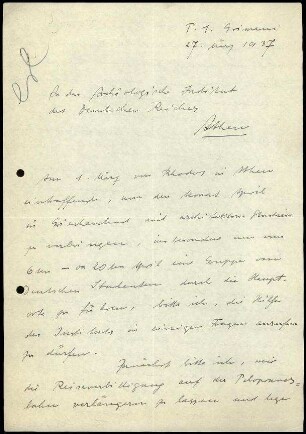 27. März 1937
An das Archäologische Institut
des Deutschen Reiches
Athen
Am 1. März von Rhodos in Athen
eintreffend, um den Monat April
in Griechenland mit
zu verbringen, insbesondere um vom
6ten – 20ten April eine Gruppe von
Deutschen Studenten durch die Haupt-
orte zu führen, bitte ich, die Hilfe
des Instituts in einigen Fragen
zu dürfen.
Zunächst bitte ich, mir
die auf der Peloponnes-
bahn verlängern zu lassen und